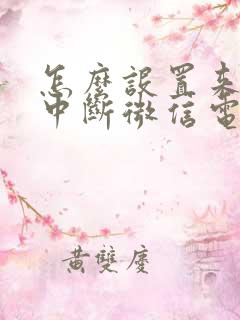 怎麼設置来
中斷微信電
黃雙慶